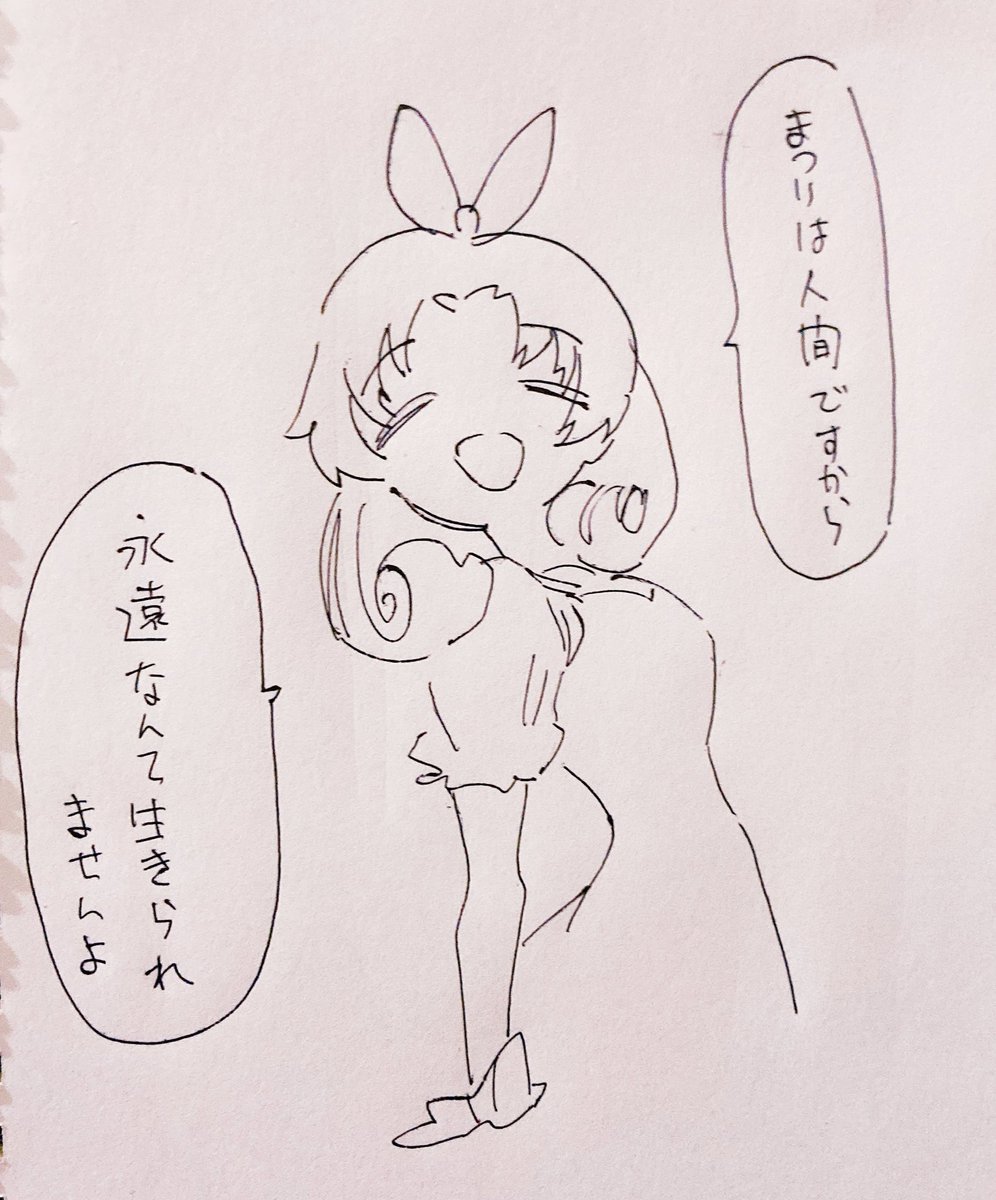 まつりは人間ですから
永遠なんて生きられ
ませんよ